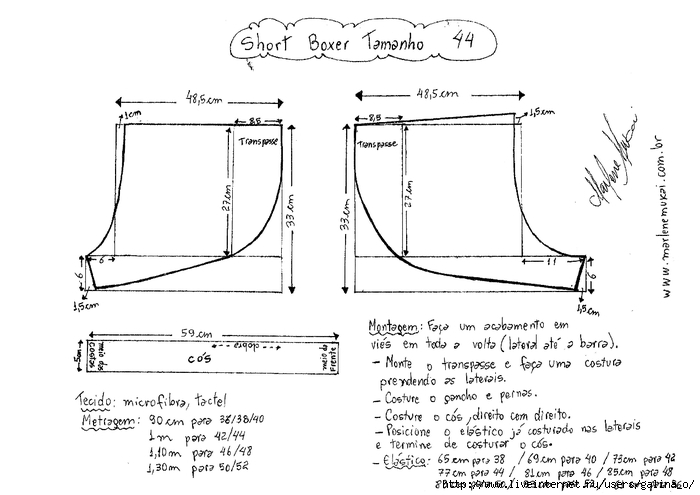 Short Boxer Tamanho 44
48,5 cm
48,5 cm
1cm
8,5
8,5
1,5 cm
Transpasse
Transpasse
27 cm
33 cm
33 cm
27 cm
6
11
6
6
1,5 cm
1,5 cm
www.marlenemukai.com.br
Marlene Mukai
59 cm
5cm
meio das costas
cós
dobra
meio da frente
Tecido: microfibra, tactel
Metragem: 90 cm para 36/38/40
1 m para 42/44
1,10m para 46/48
1,30m para 50/52
Montagem: Faça um acabamento em
viés em toda a volta (lateral até a barra).
- Monte o transpasse e faça uma costura
prendendo as laterais.
- Costure o gancho e pernas.
- Costure o cós, direito com direito.
- Posicione o elástico já costurado nas laterais
e termine de costurar o cós.
- Elástico: 65 cm para 38 / 69 cm para 40 / 73 cm para 42
77 cm para 44 / 81 cm para 46 / 85 cm para 48
http://www.liveinternet.ru/users/galina60/